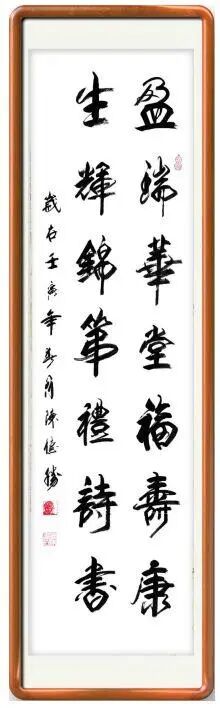 盈瑞華堂福壽康
生輝錦第禮詩書
歲在壬寅年春月陳億勝